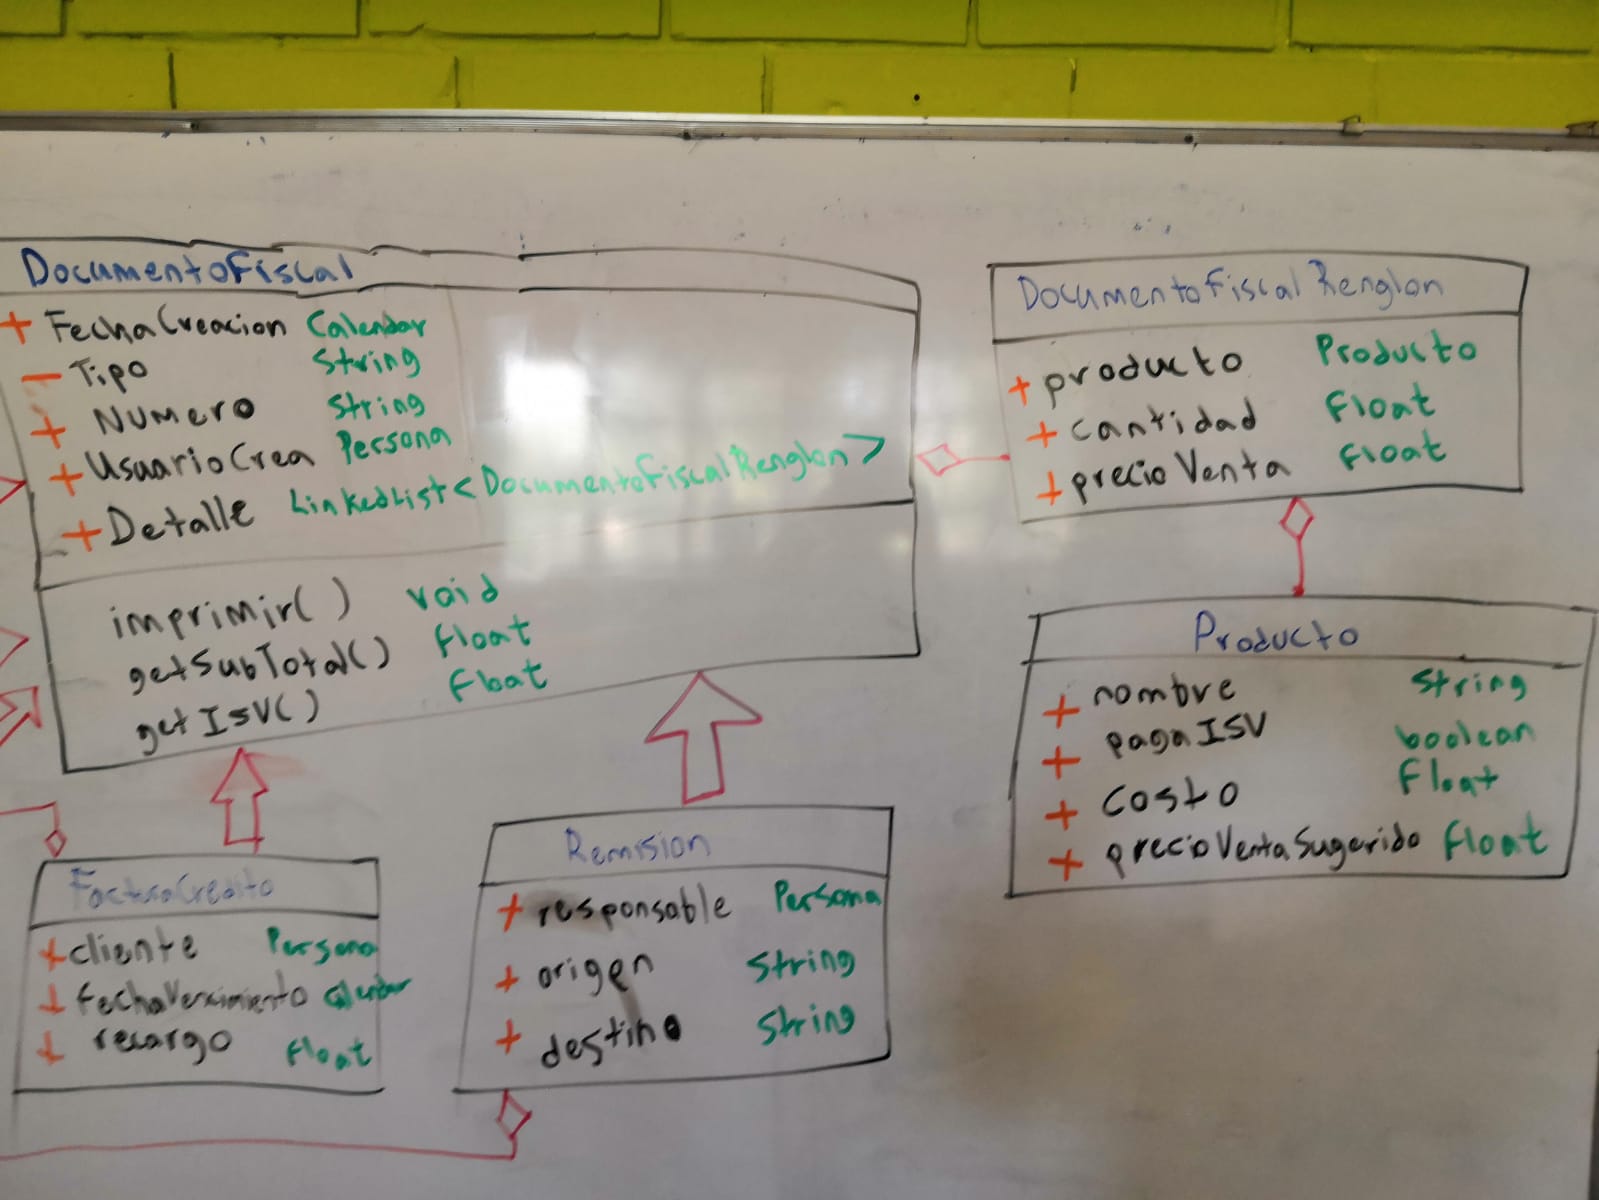 DocumentoFiscal
+ FechaCreacion Calendar
- Tipo String
+ Numero String
+ UsuarioCrea Persona
+ Detalle LinkedList<DocumentoFiscalRenglon>
imprimir() void
getSubTotal() float
getISV() float
DocumentoFiscalRenglon
+ producto Producto
+ cantidad float
+ precioVenta float
Producto
+ nombre String
+ pagaISV boolean
+ costo float
+ precioVentaSugerido float
FacturaCredito
+ cliente Persona
+ fechaVencimiento Calendar
+ recargo float
Remision
+ responsable Persona
+ origen String
+ destino String